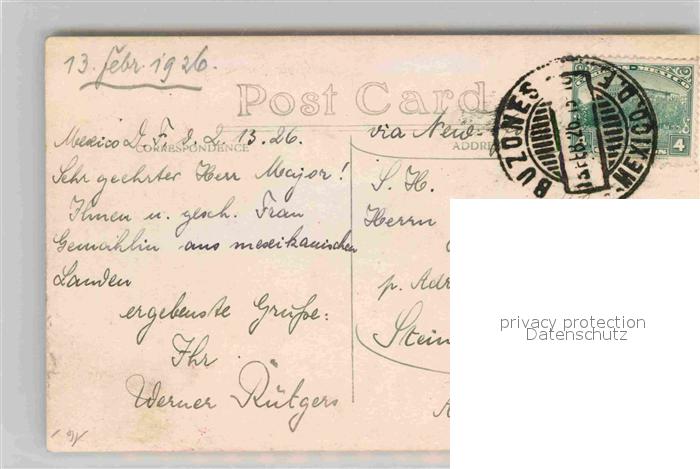 13. Febr 1926.
Post Card
Mexico D. F. 2. 2. 13. 26.
CORRESPONDENCE
Sehr geehrter Herr Major!
Ihnen u. gesch. Frau
Gemahlin aus mexikanischen
Landen
ergebenste Grüße:
Ihr
Werner Rütgers
via New-
ADDRE
S. H.
Herrn
p. Adr
Stein
BUZONES MEXICO, D.F.
4
privacy protection
Datenschutz